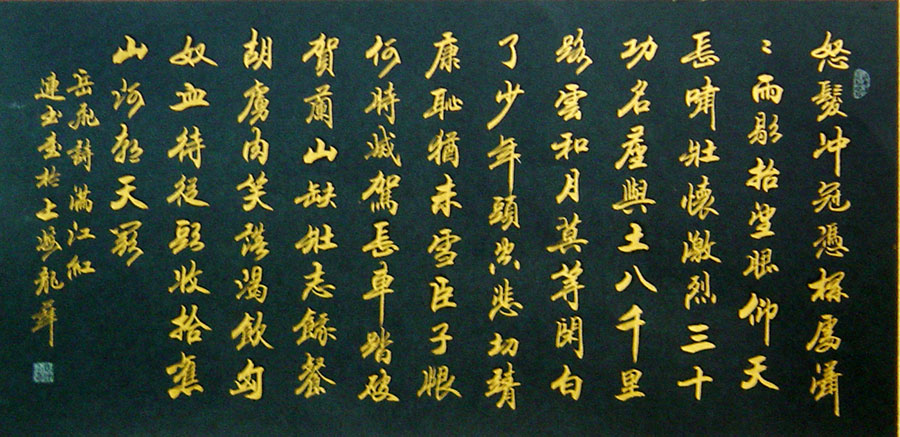 怒髮冲冠憑栏處瀟
〻雨歇抬望眼仰天
長嘯壯懷激烈三十
功名塵與土八千里
路雲和月莫等閑白
了少年頭空悲切靖
康恥猶未雪臣子恨
何時滅駕長車踏破
賀蘭山缺壯志飢餐
胡虜肉笑談渴飲匈
奴血待從頭收拾舊
山河朝天闕
岳飛詩滿江紅
連玉書於上海龍華